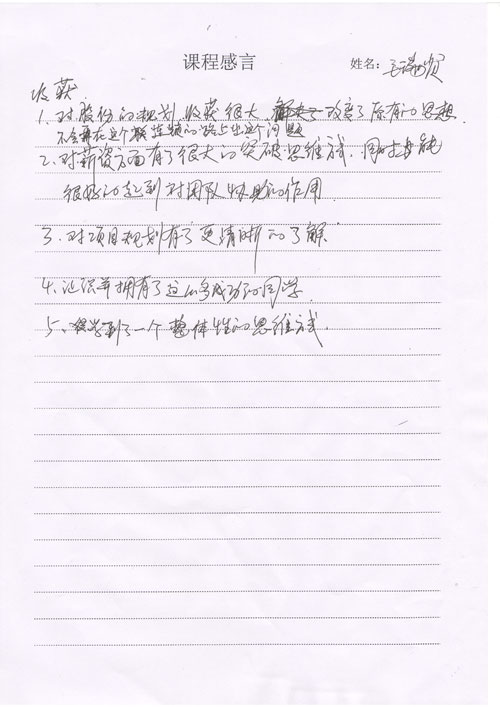 课程感言
姓名：王
收获
1、对股份的规划，收获很大，改变了原有的思想
不会再在这个的路上出这个问题
2、对薪资方面有了很大的突破思维方式，同时也能
很好的起到对团队协助的作用
3、对项目规划有了更清晰的了解
4、认识并拥有了这么多成功的同学
5、学到了一个整体性的思维方式.